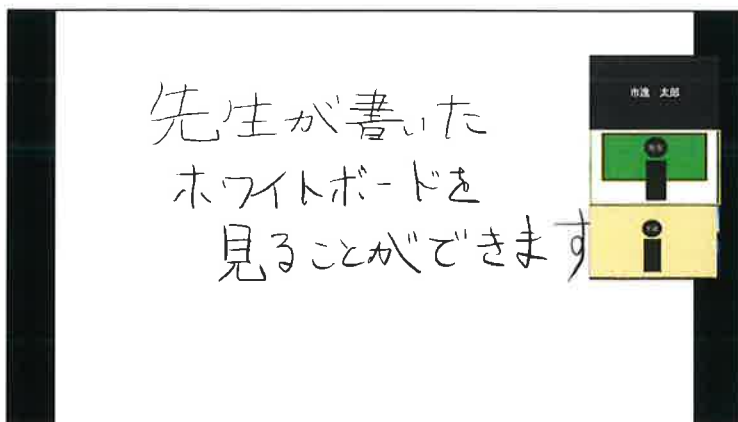 先生が書いた
ホワイトボードを
見ることができます
市進 太郎